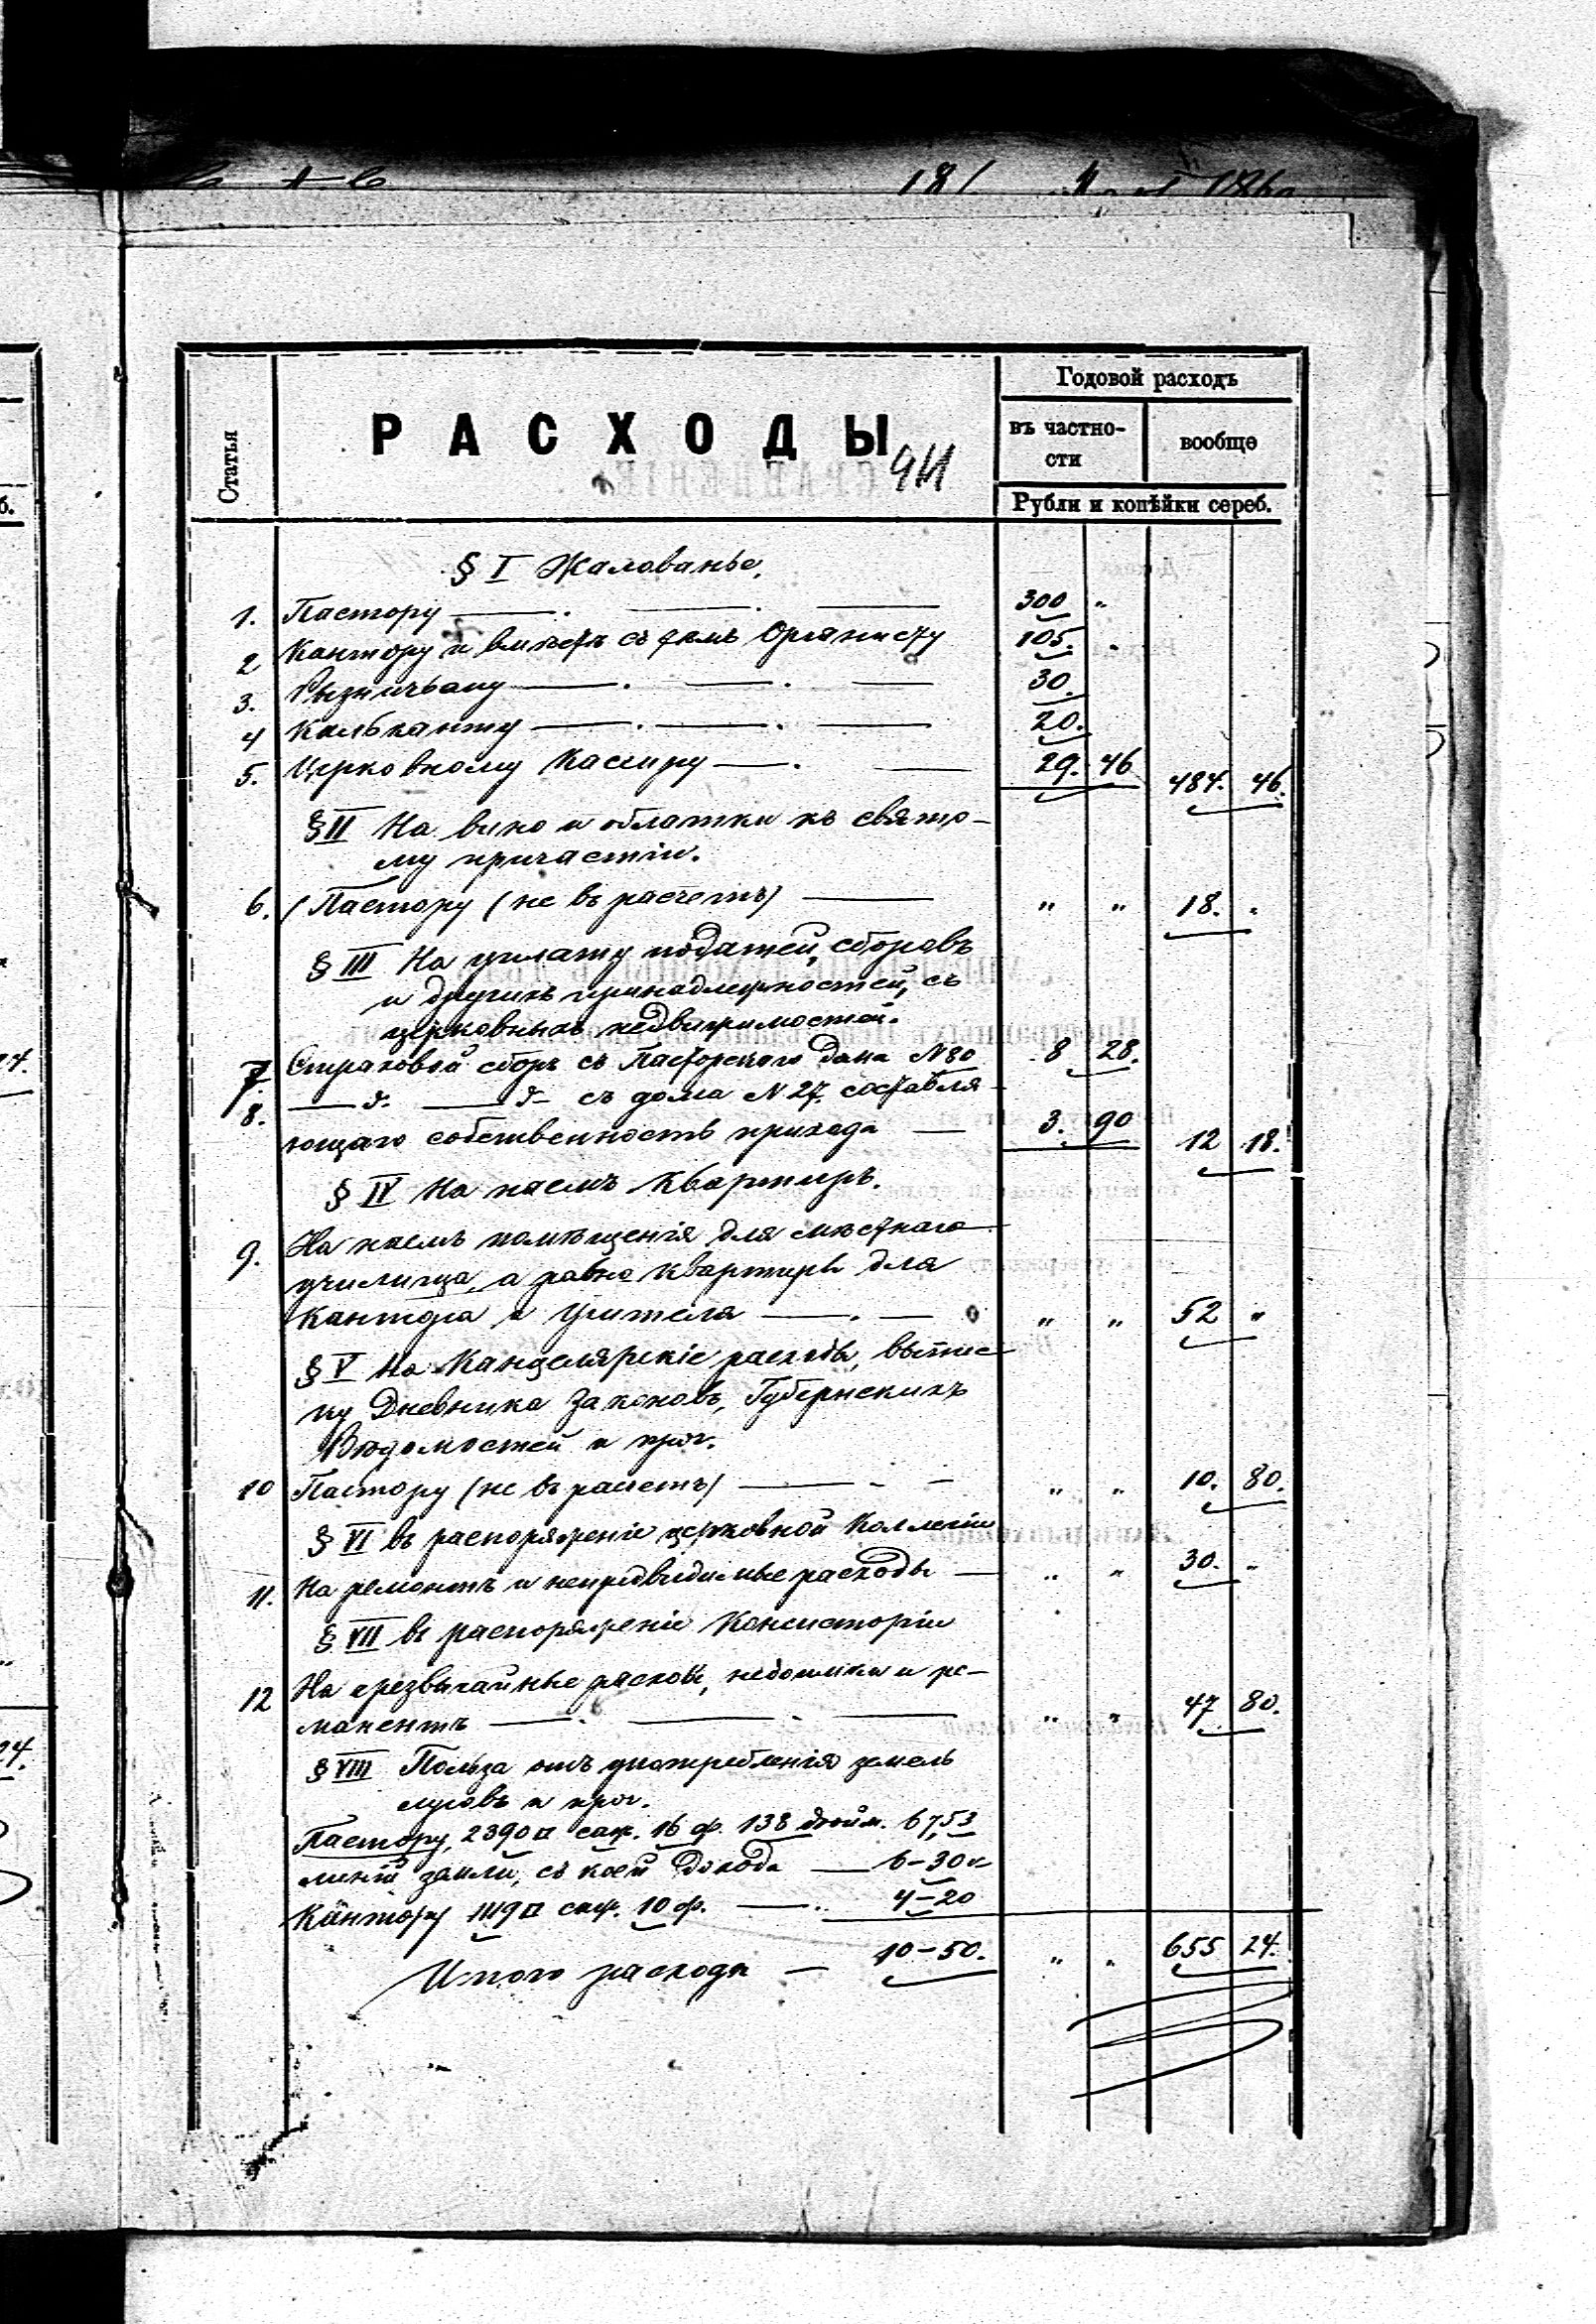 181
Статья
РАСХОДЫ
Годовой расходъ
въ частно-
сти
вообще
Рубли и копѣйки сереб.
§ I Жалованье.
1. Пастору — . — . — 300 "
2 Кантору и вмѣстѣ съ тѣмъ Органисту 105. "
3. Ризничьему — . — . — 30.
4 Калканту — . — . — 20.
5. Церковному Кассиру — . — 29. 46 484. 46.
§ II На вино и облатки къ свято-
му причастію.
6. (Пастору (не въ расчетъ) — " " 18. "
§ III На уплату податей, сборовъ
и другихъ принадлежностей, съ
церковныхъ недвижимостей.
7. Страховой сборъ съ Пасторскаго дома N 80 8 28.
8. — д- — д- съ дома N 27. составля-
ющаго собственность прихода — 3. 90 12 18.
§ IV На наемъ квартиръ.
9. На наемъ помѣщенія для мѣстнаго
училища, а равно квартиры для
Кантора и Учителя — . — " " 52 "
§ V На Канцелярскіе расходы, выпис-
ку Дневника Законовъ, Губернскихъ
Вѣдомостей и проч.
10 Пастору (не въ расчетъ) — - — " " 10. 80.
§ VI въ распоряженіе церковной Коллегіи
11. На ремонтъ и непредвидимые расходы — " " 30. "
§ VII въ распоряженіе Консисторіи
12 На чрезвычайные расходы, недоимки и ре-
манентъ — . — . — " " 47 80.
§ VIII Польза отъ употребленія земель
луговъ и проч.
Пастору, 2390 □ саж. 16 ф. 138 дюйм. 6753
линій земли, съ коей дохода — 6-30 к
Кантору 1119 □ саж. 10 ф. — . . 4-20
Итого расхода — 10-50. " " 655 24.
24.
24.